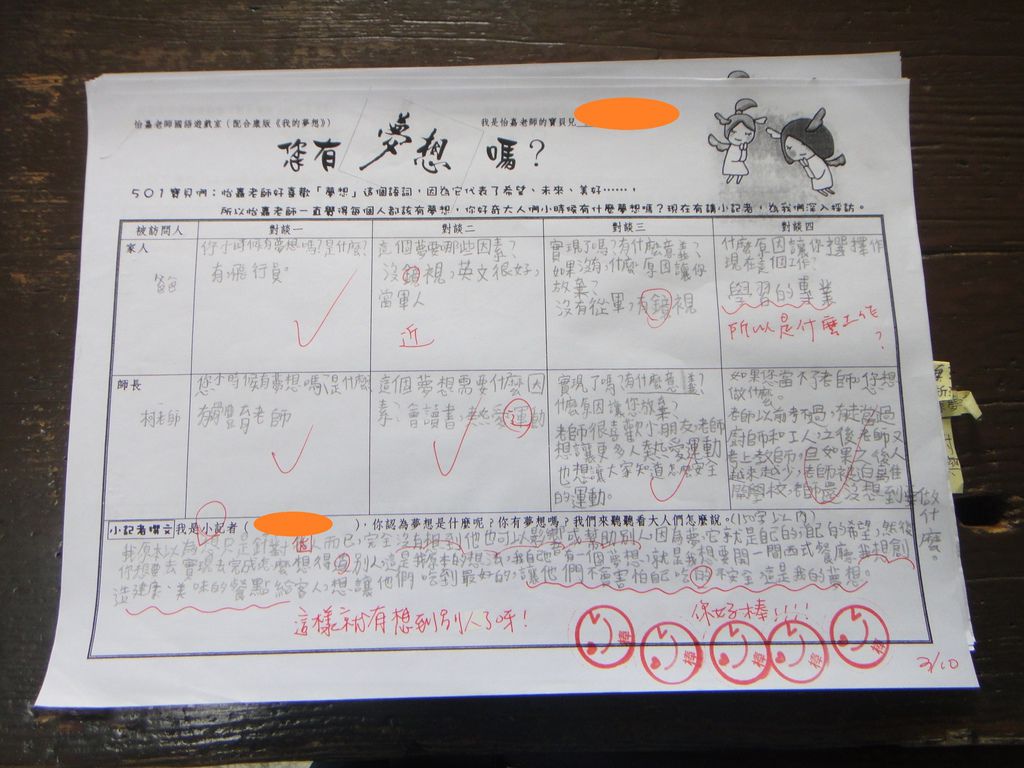 怡嘉老師國語遊戲室(配合康版《我的夢想》)
我是怡嘉老師的寶貝兒
您有夢想嗎?
501寶貝們:怡嘉老師好喜歡「夢想」這個語詞,因為它代表了希望、未來、美好……,
所以怡嘉老師一直覺得每個人都該有夢想,你好奇大人們小時候有什麼夢想嗎?現在有請小記者,為我們深入採訪。
被訪問人 對談一 對談二 對談三 對談四
家人
爸爸
你小時候有夢想嗎?是什麼?
有,飛行員。
這個夢要哪些因素?
沒鏡視,英文很好,
當軍人
近
實現了嗎?有什麼意義?
如果沒有,什麼原因讓你
放棄?
沒有從軍,有鏡視
什麼原因讓你選擇作
現在這個工作?
學習的專業
所以是什麼工作
?
師長
柯老師
您小時候有夢想嗎?是什麼
有,體育老師
這個夢想需要什麼因
素?會讀書,熱愛運動
實現了嗎?有什麼意義?
什麼原因讓您放棄?
老師很喜歡小朋友,老師
想讓更多人熱愛運動
也想讓大家知道怎麼安全
的運動。
如果您當不了老師,您想
做什麼。
老師以前考不過,有去當過
廚師和工人,之後老師又
考上教師,但如果之後人
越來越少,老師被迫自離
開學校,老師還沒想到要做
什
麼。
小記者撰文 我是小記者( ),你認為夢想是什麼呢?你有夢想嗎?我們來聽聽看大人們怎麼說。(150字以內)
我原本以為夢只是針對個人而已,完全沒有想到他也可以影響或幫助別人,因為夢,它就是自己的,自己的希望,然後
你想要去實現去完成,怎麼想得到別人,這是我原本的想法,我自己有一個夢想,就是我想要開一間西式餐廳,我想創
造健康、美味的餐點給客人,想讓他們吃到最好的,讓他們不會害怕自己吃的不安全,這是我的夢想。
這樣就有想到別人了呀!
你好棒!!!!
棒 棒 棒 棒 棒
3/10